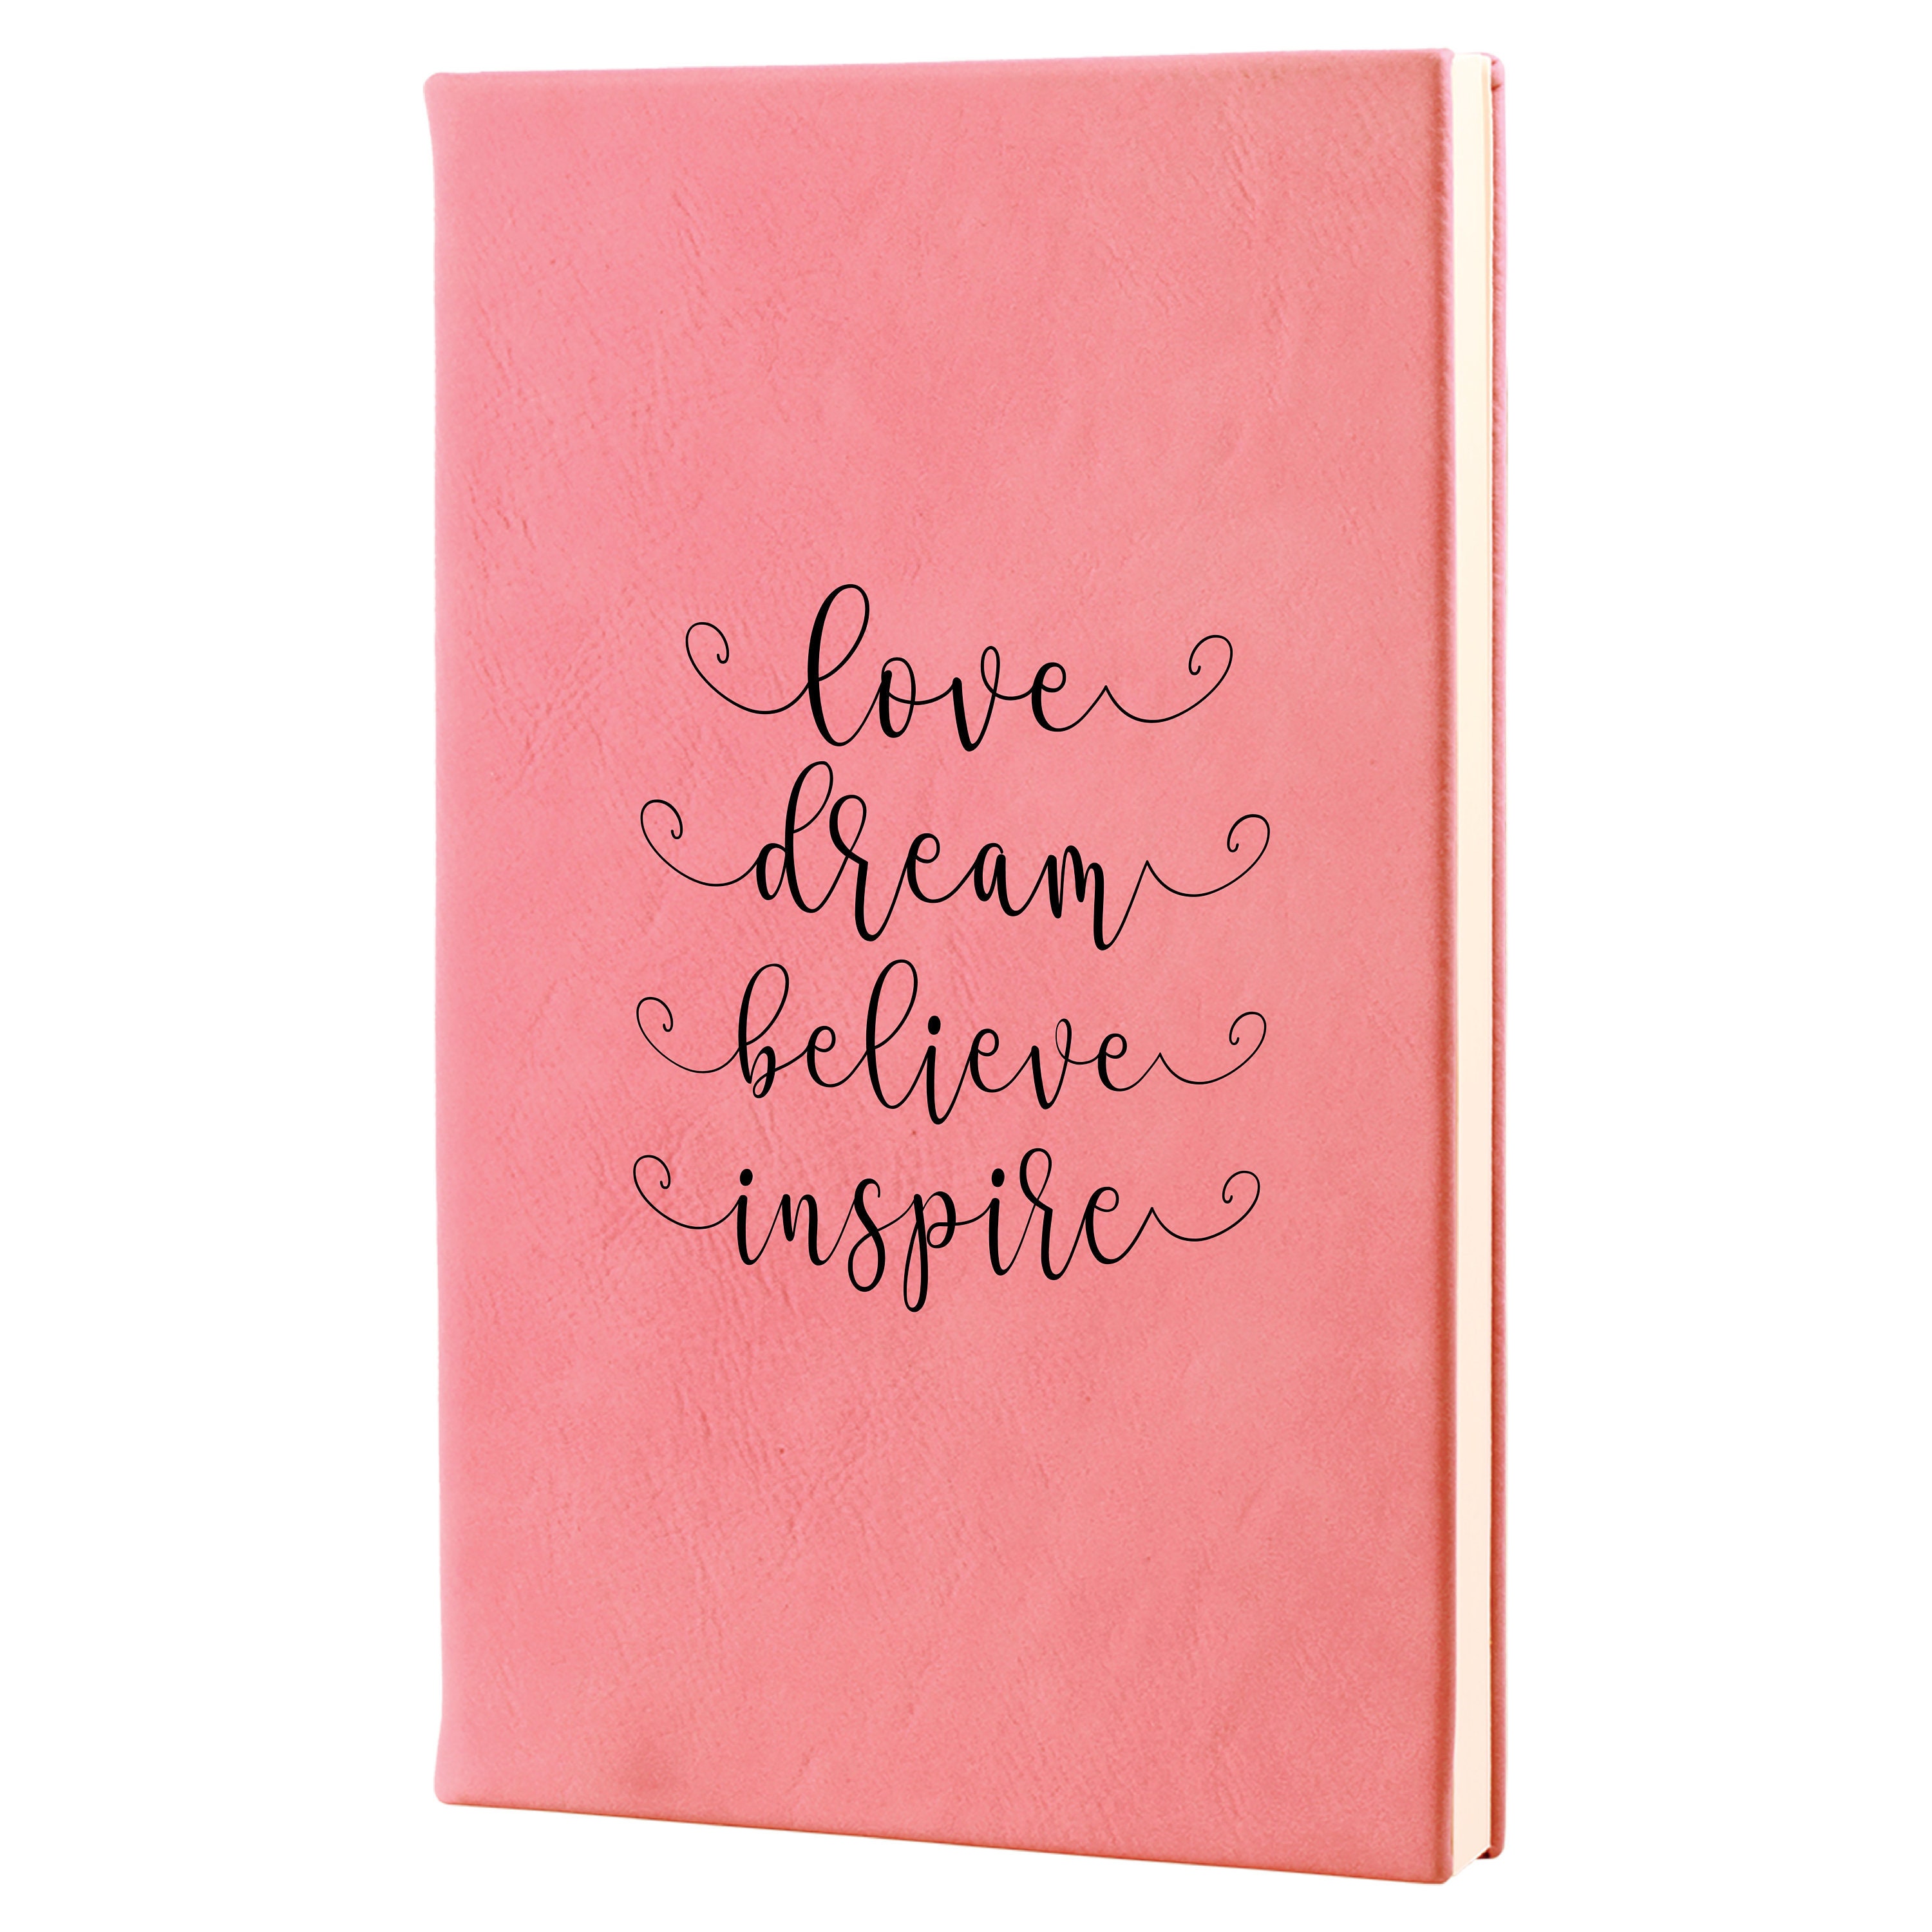 love
dream
believe
inspire